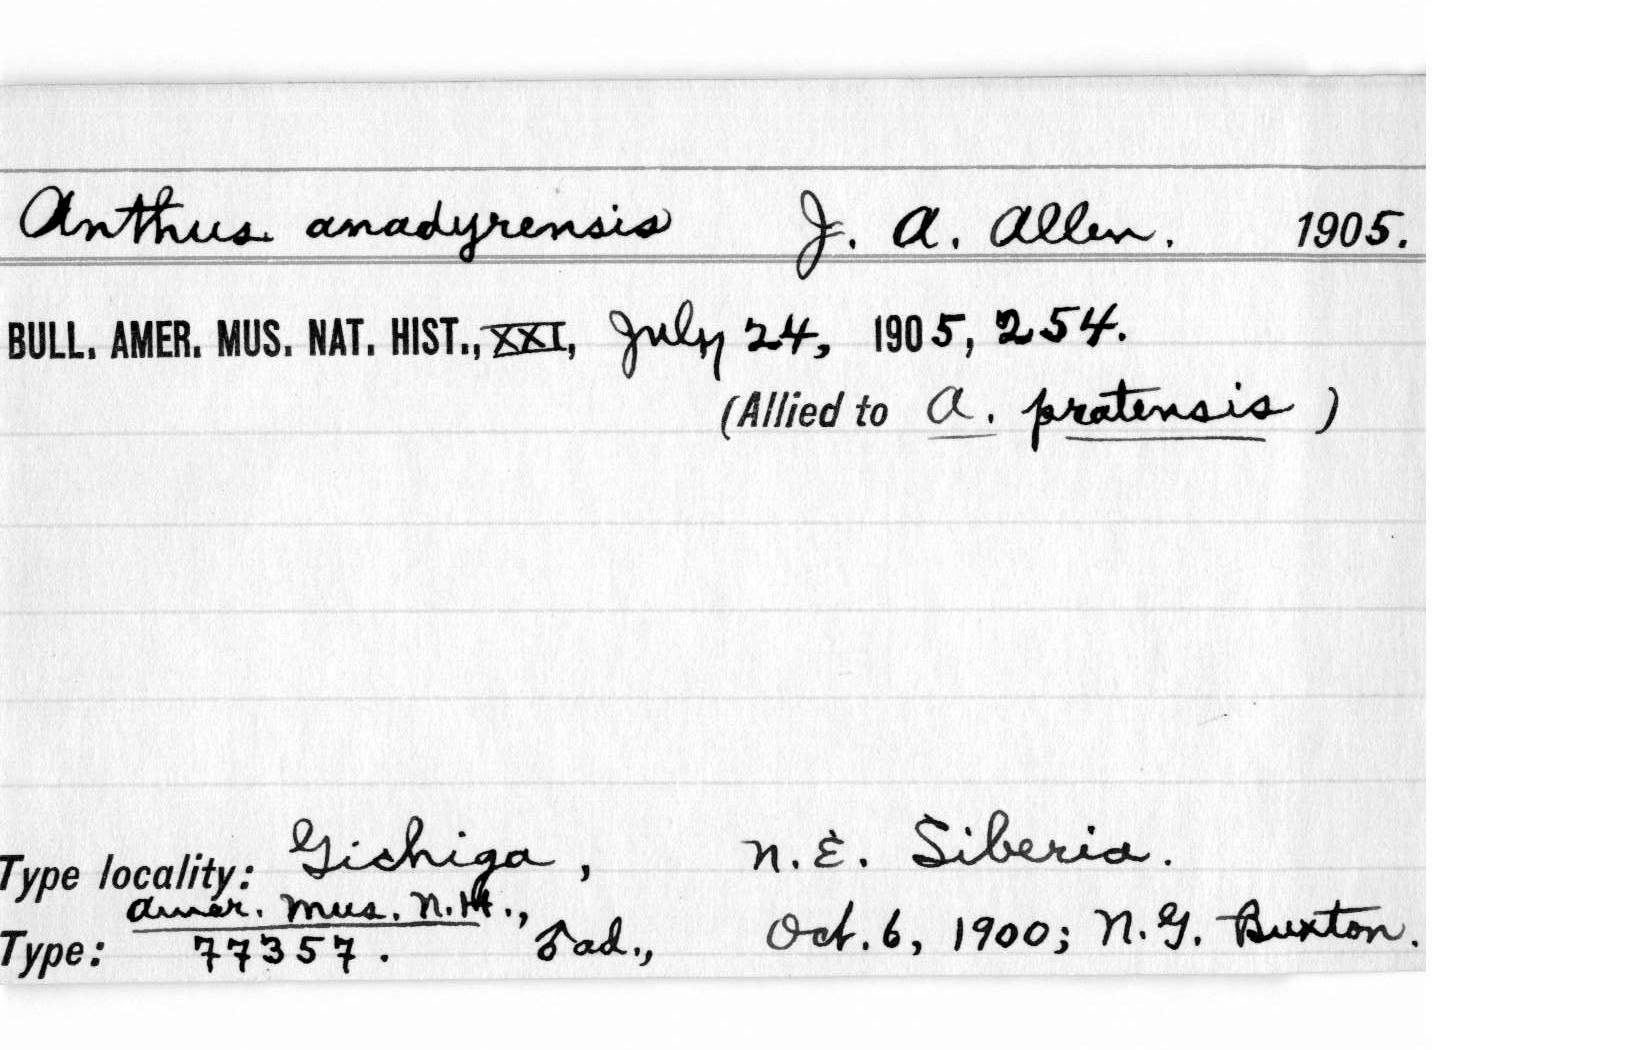 Anthus anadyrensis J. A. Allen. 1905.
BULL. AMER. MUS. NAT. HIST., XXI, July 24, 1905, 254.
(Allied to A. pratensis)
Type locality: Gichiga, N.E. Siberia.
Amer. Mus. N.H.,
Type: 77357. ♂ ad., Oct. 6, 1900; N.G. Buxton.